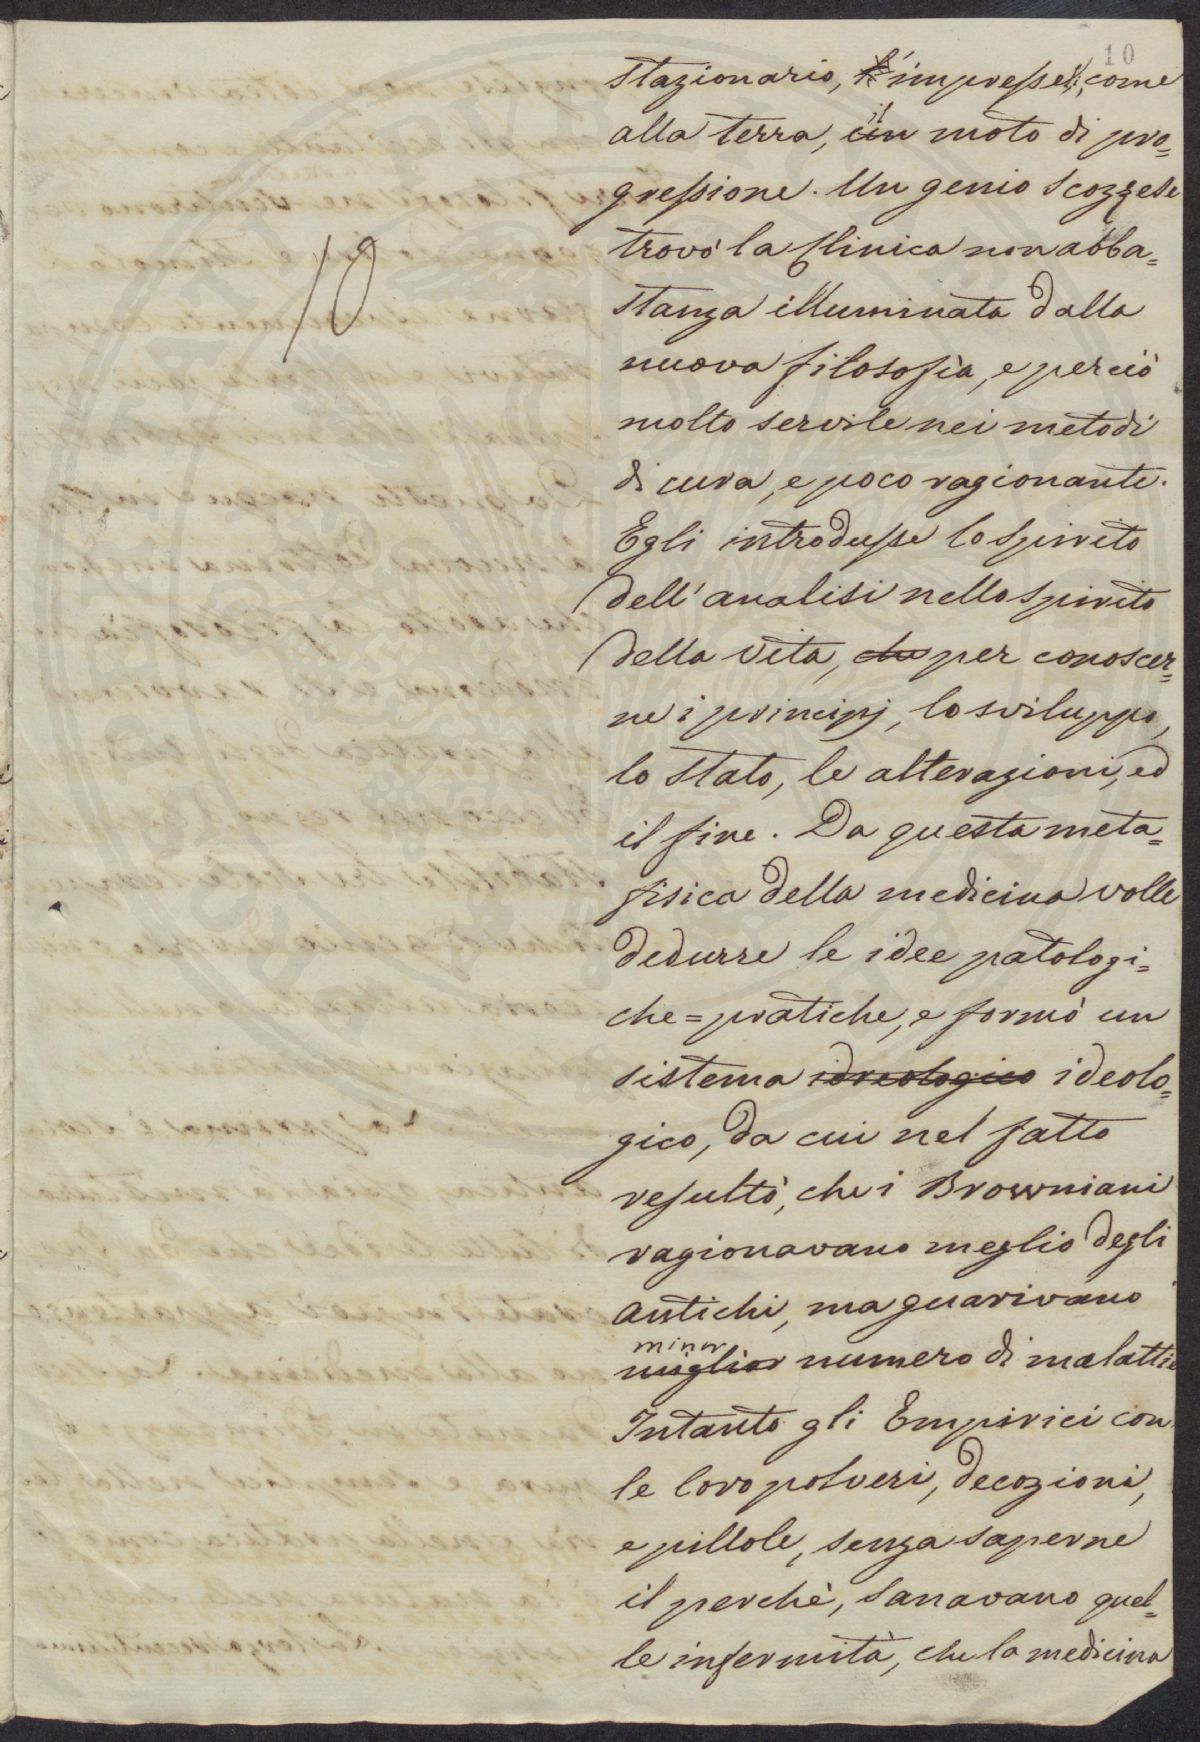 10
stazionario, l'impresse, come
alla terra, il moto di pro=
gressione. Un genio Scozzese
trovò la Clinica non abba=
stanza illuminata dalla
nuova filosofia, e perciò
molto servile nei metodi
di cura, e poco ragionante.
Egli introdusse lo spirito
dell'analisi nello spirito
della vita, che per conoscer=
ne i principj, lo sviluppo,
lo stato, le alterazioni, ed
il fine. Da questa meta=
fisica della medicina volle
dedurre le idee patologi=
che=pratiche, e formò un
sistema idreologico ideolo=
gico, da cui nel fatto
resultò, che i Browniani
ragionavano meglio degli
Antichi, ma guarivano
minor
miglior numero di malattie
Intanto gli Empirici con
le loro polveri, decozioni,
e pillole, senza saperne
il perchè, sanavano quel=
le infermità, che la medicina
10